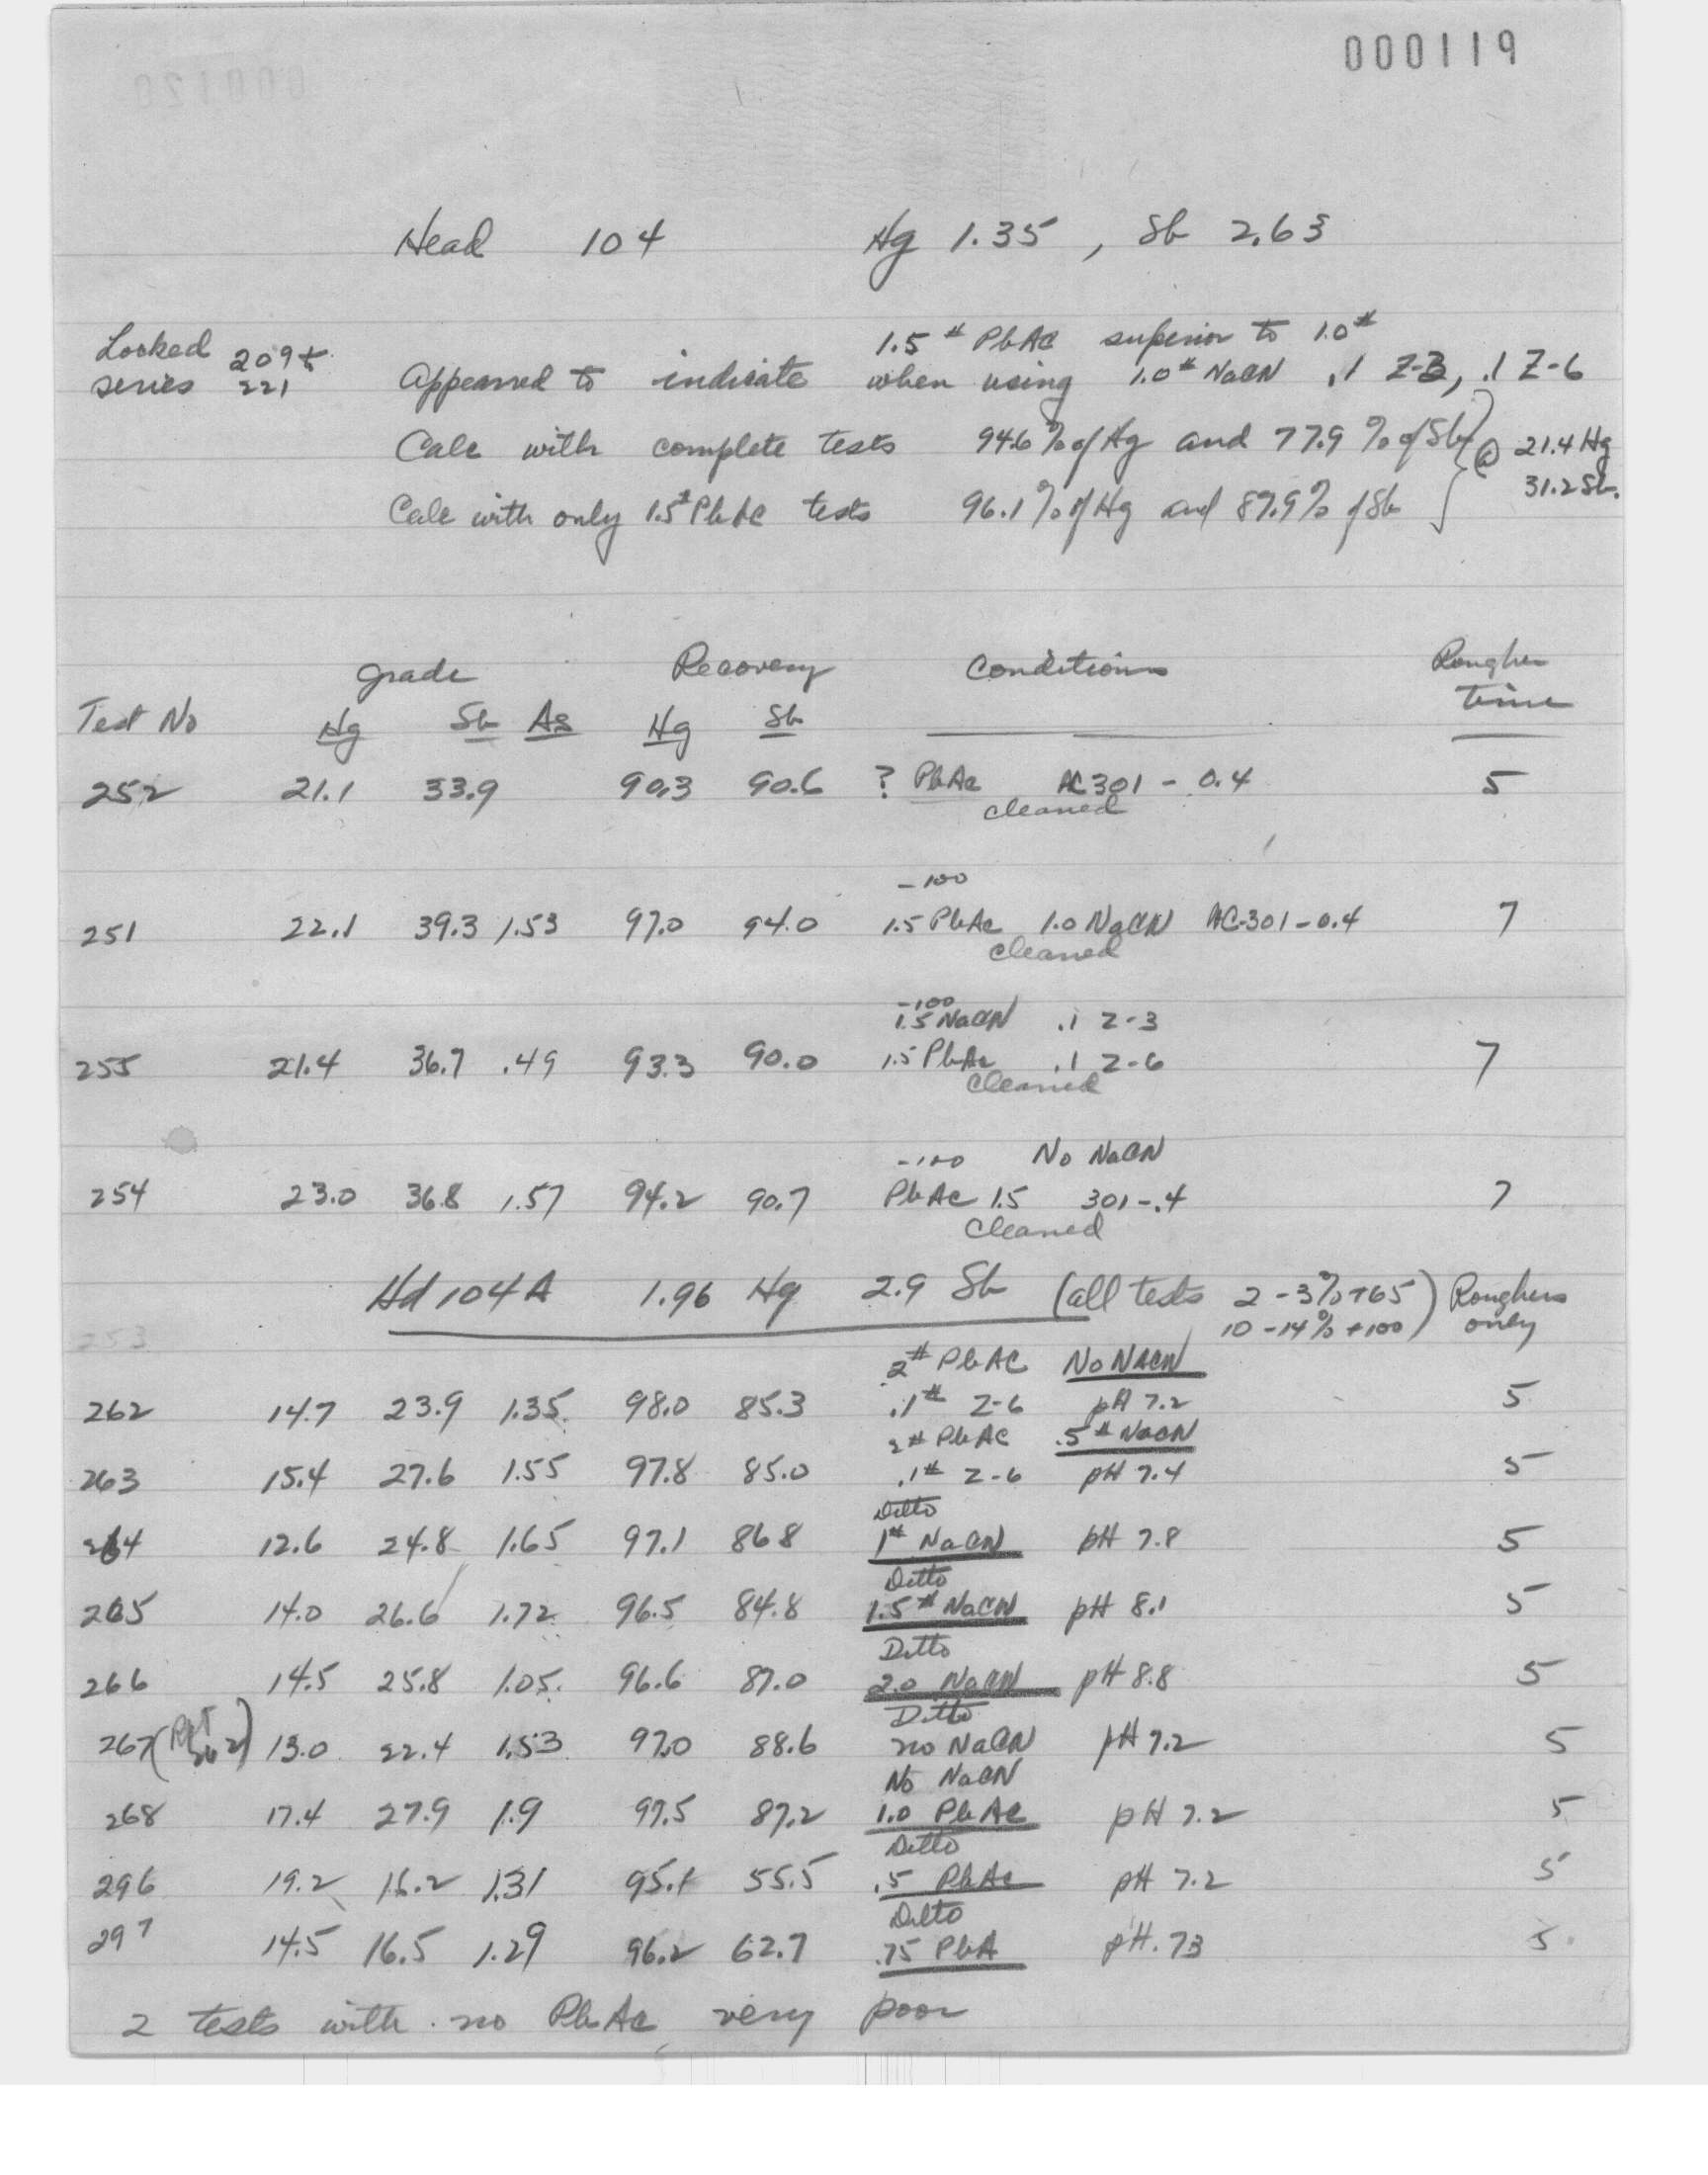 000119
Head 104 Hg 1.35 , Sb 2.63
1.5 # PbAc superior to 1.0#
Locked series 209 to 221 Appeared to indicate when using 1.0# NaCN .1 Z-3, .1 Z-6
Calc with complete tests 94.6 % of Hg and 77.9 % of Sb } @ 21.4 Hg
Calc with only 1.5# PbAc tests 96.1 % of Hg and 87.9 % of Sb 31.2 Sb.
grade Recovery Conditions Rougher time
Test No Hg Sb As Hg Sb
252 21.1 33.9 90.3 90.6 ? PbAc AC 301 - 0.4 5
cleaned
-100
251 22.1 39.3 1.53 97.0 94.0 1.5 PbAc 1.0 NaCN AC-301-0.4 7
cleaned
-100
1.5 NaCN .1 Z-3
255 21.4 36.7 .49 93.3 90.0 1.5 PbAc .1 Z-6 7
cleaned
-100 No NaCN
254 23.0 36.8 1.57 94.2 90.7 PbAc 1.5 301-.4 7
cleaned
Hd 104A 1.96 Hg 2.9 Sb (all tests 2-3% +65) Roughers
253 10-14% +100) only
2# PbAC No NaCN
262 14.7 23.9 1.35 98.0 85.3 .1# Z-6 pH 7.2 5
2# PbAC .5# NaCN
263 15.4 27.6 1.55 97.8 85.0 .1# Z-6 pH 7.4 5
Ditto
264 12.6 24.8 1.65 97.1 86.8 1# NaCN pH 7.8 5
Ditto
265 14.0 26.6 1.72 96.5 84.8 1.5# NaCN pH 8.1 5
Ditto
266 14.5 25.8 1.05 96.6 87.0 2.0 NaCN pH 8.8 5
Ditto
267 (Rpt 262) 13.0 22.4 1.53 97.0 88.6 no NaCN pH 7.2 5
No NaCN
268 17.4 27.9 1.9 97.5 87.2 1.0 PbAc pH 7.2 5
Ditto
296 19.2 16.2 1.31 95.1 55.5 .5 PbAc pH 7.2 5
Ditto
297 14.5 16.5 1.29 96.2 62.7 .75 PbA pH. 73 5
2 tests with no PbAc very poor